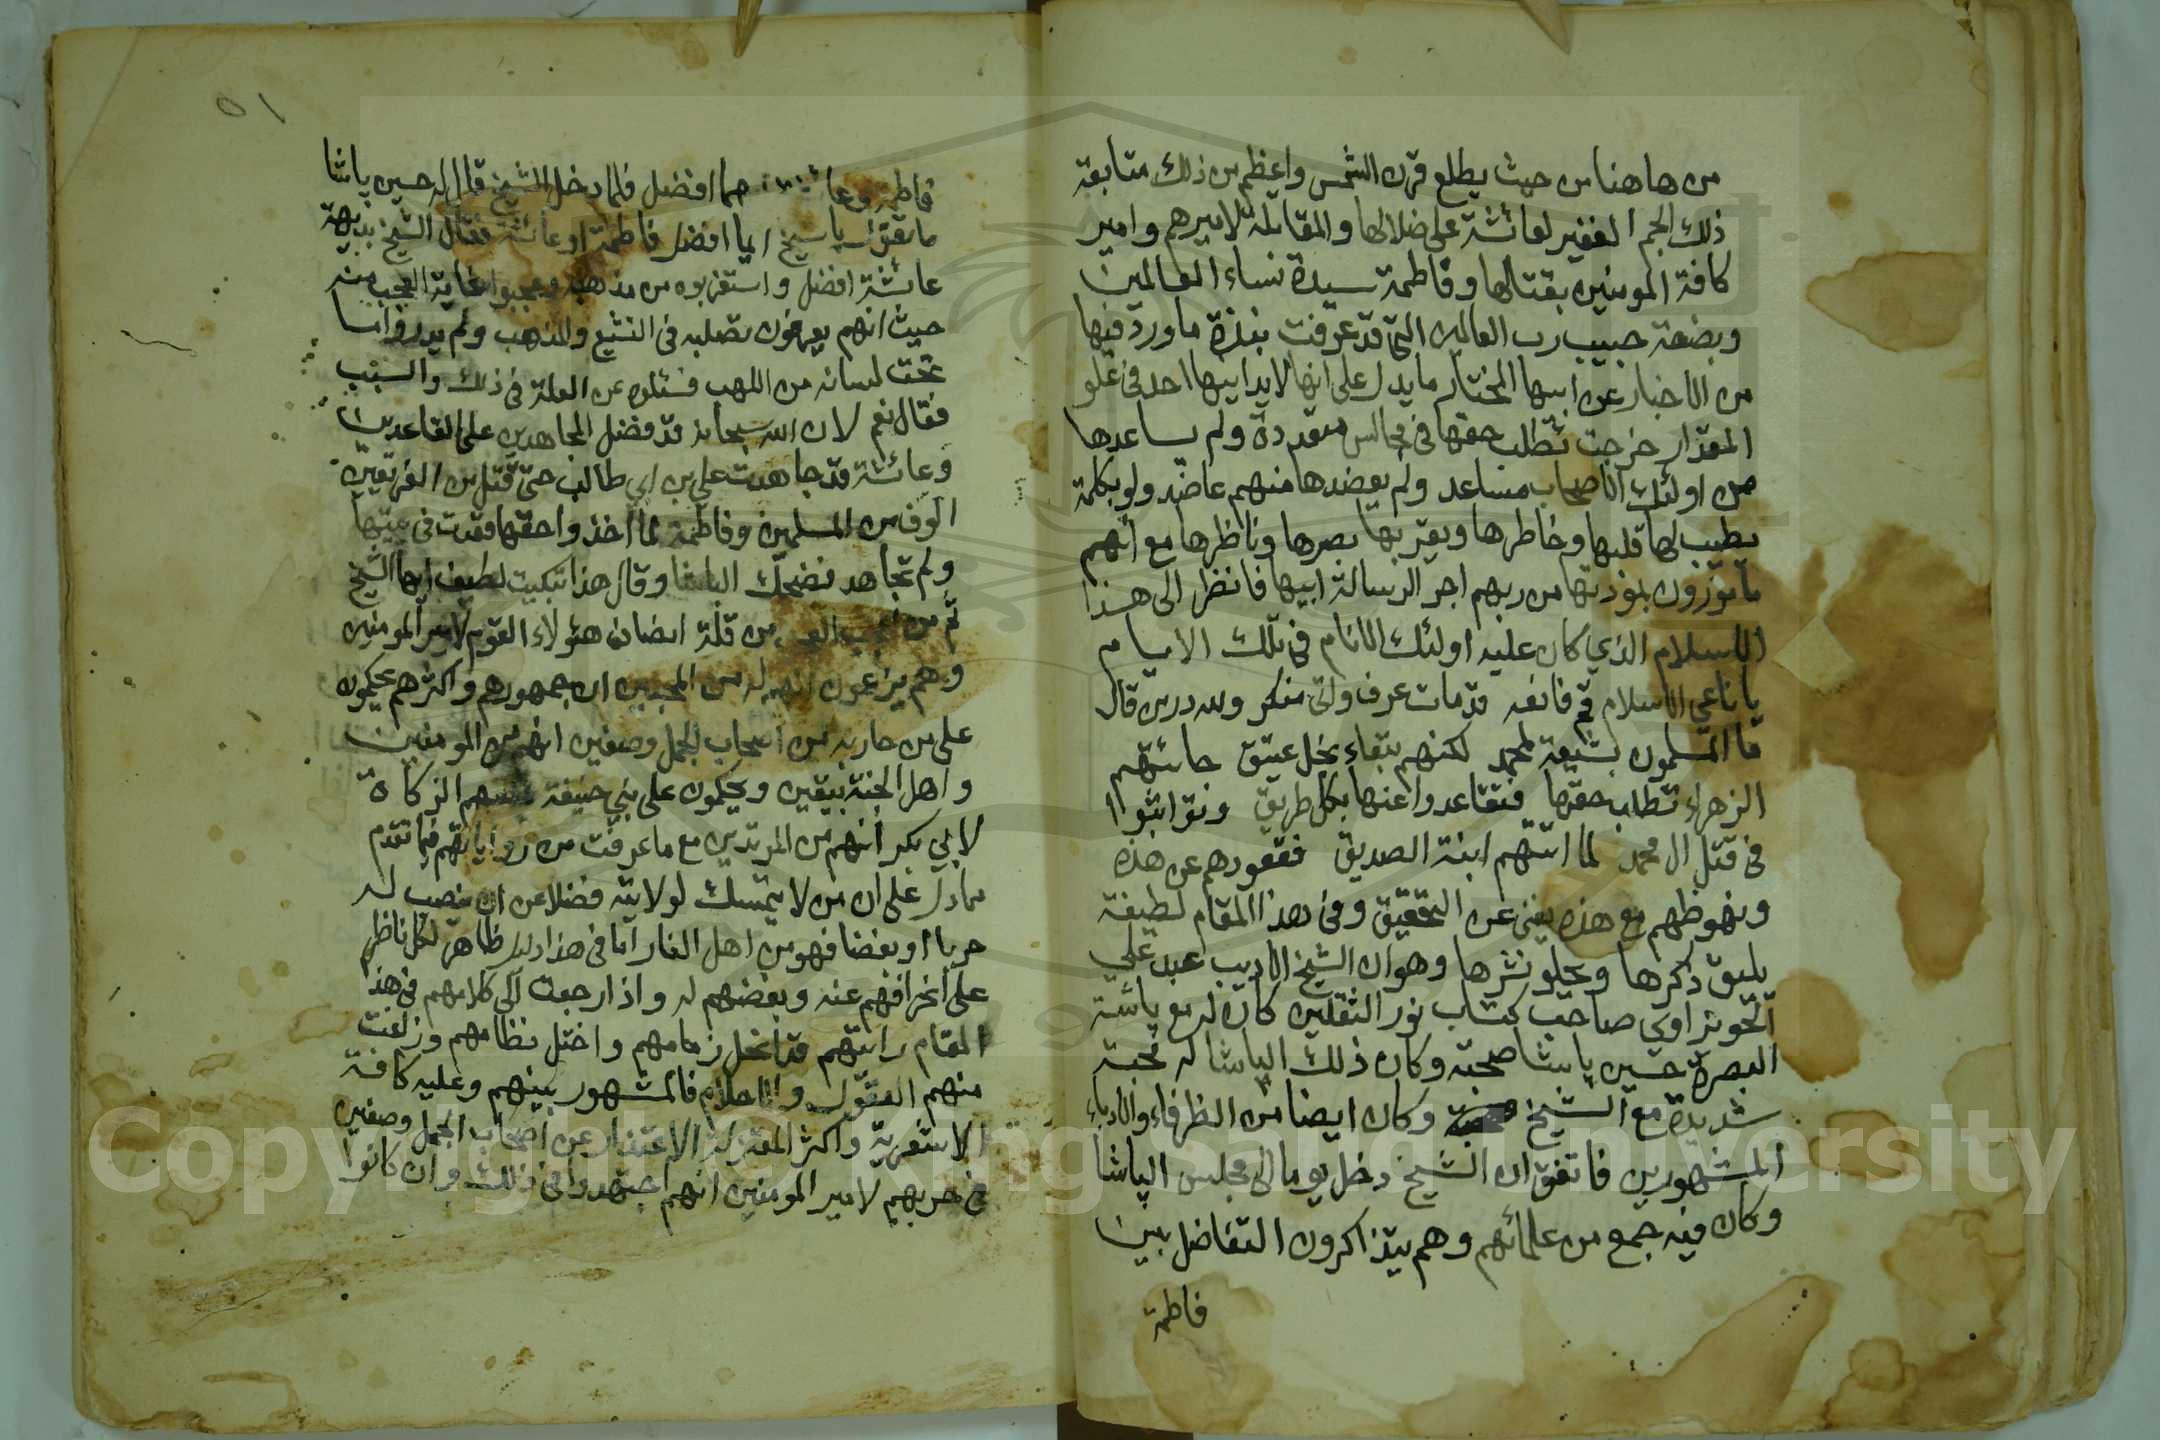 من هاهنا من حيث يطلع قرن الشمس واعظم من ذلك متابعة
ذلك الجم الغفير لعائشة على ضلالها والمقاتلة لاميرهم وامير
كافة المومنين بقتالها وفاطمة سيدة نساء العالمين
وبضعة حبيب رب العالمين التي قد عرفت نبذة ما ورد فيها
من الاخبار عن ابيها المختار ما يدل على انها لا يدانيها احد في علو
المقدار خرجت تطلب حقها في مجالس متعددة ولم يساعدها
من اولئك الاصحاب مساعد ولم يعضدها منهم عاضد ولو بكلمة
يطيب لها قلبها وخاطرها ويقر بها بصرها وناظرها مع انهم
مامورون بمودتها من ربهم اجر الرسالة ابيها فانظر الى هذا
الاسلام الذي كان عليه اولئك الانام في تلك الايام
يا ناعي الاسلام قم فانعه قد مات عرف واتى منكر ولله در من قال
ما المسلمون بشيعة لمحمد لكنهم بتقاء نجل عيتق جائتهم
الزهراء تطلب حقها فتقاعدوا عنها بكل طريق وتواثبوا
في قتل ال محمد لما اتتهم ابنة الصديق فقعودهم عن هذه
ونهوظهم مع هذه يغني عن التحقيق وفي هذا المقام لطيفة
يليق ذكرها ويحلو نشرها وهو ان الشيخ الاديب عبد علي
الحويزاوي صاحب كتاب نور الثقلين كان له مع باشة
البصرة حسين باشا صحبة وكان ذلك الباشا له محبة
شديدة مع الشيخ وكان ايضا من الظرفاء والادباء
المشهورين فاتفق ان الشيخ دخل يوما الى مجلس الباشا
وكان فيه جمع من علمائهم وهم يتذاكرون التفاضل بين
فاطمة
٥١
فاطمة وعائشة افضل فلما دخل الشيخ قال له حسين باشا
ما تقول يا شيخ ايما افضل فاطمة او عائشة فقال الشيخ بديهة
عائشة افضل واستغربوه من مذهبه وعجبوا غاية العجب منه
حيث انهم يعرفون تصلبه في التشيع والمذهب ولم يدروا ما
تحت لسانه من اللهب فسئلوه عن العلة في ذلك والسبب
فقال نعم لان الله سبحانه قد فضل المجاهدين على القاعدين
وعائشة قد جاهدت علي بن ابي طالب حتى قتل من الفريقين
الوف من المسلمين وفاطمة لما اخذوا حقها قعدت في بيتها
ولم تجاهد فضحك الباشا وقال هذا تبكيت لطيف ايها الشيخ
ثم من اعجب العجب من قلة انصاف هئولاء القوم لامير المومنين
وهم يزعمون انهم له من المحبين ان جمهورهم واكثرهم يحكمون
على من حاربه من اصحاب الجمل وصفين انهم من المومنين
واهل الجنة بيقين ويحكمون على بني حنيفة الزكاة
لابي بكر انهم من المرتدين مع ما عرفت من رواياتهم فيما تقدم
مما دل على ان من لا يتمسك لولايته فضلا عن ان ينصب له
حربا او بغضا فهو من اهل النار اما في هذا دليل ظاهر لكل ناظر
على انحرافهم عنه وبغضهم له واذا رجعت الى كلامهم في هذا
المقام رايتهم قد انحل زمامهم واختل نظامهم وزلفت
منهم العقول والاحلام فالمشهور بينهم وعليه كافة
الاشعرية واكثر المعتزلة الاعتذار عن اصحاب الجمل وصفين
في حربهم لامير المومنين انهم اجتهدوا في ذلك وان كانوا
Copyright © King Saud University